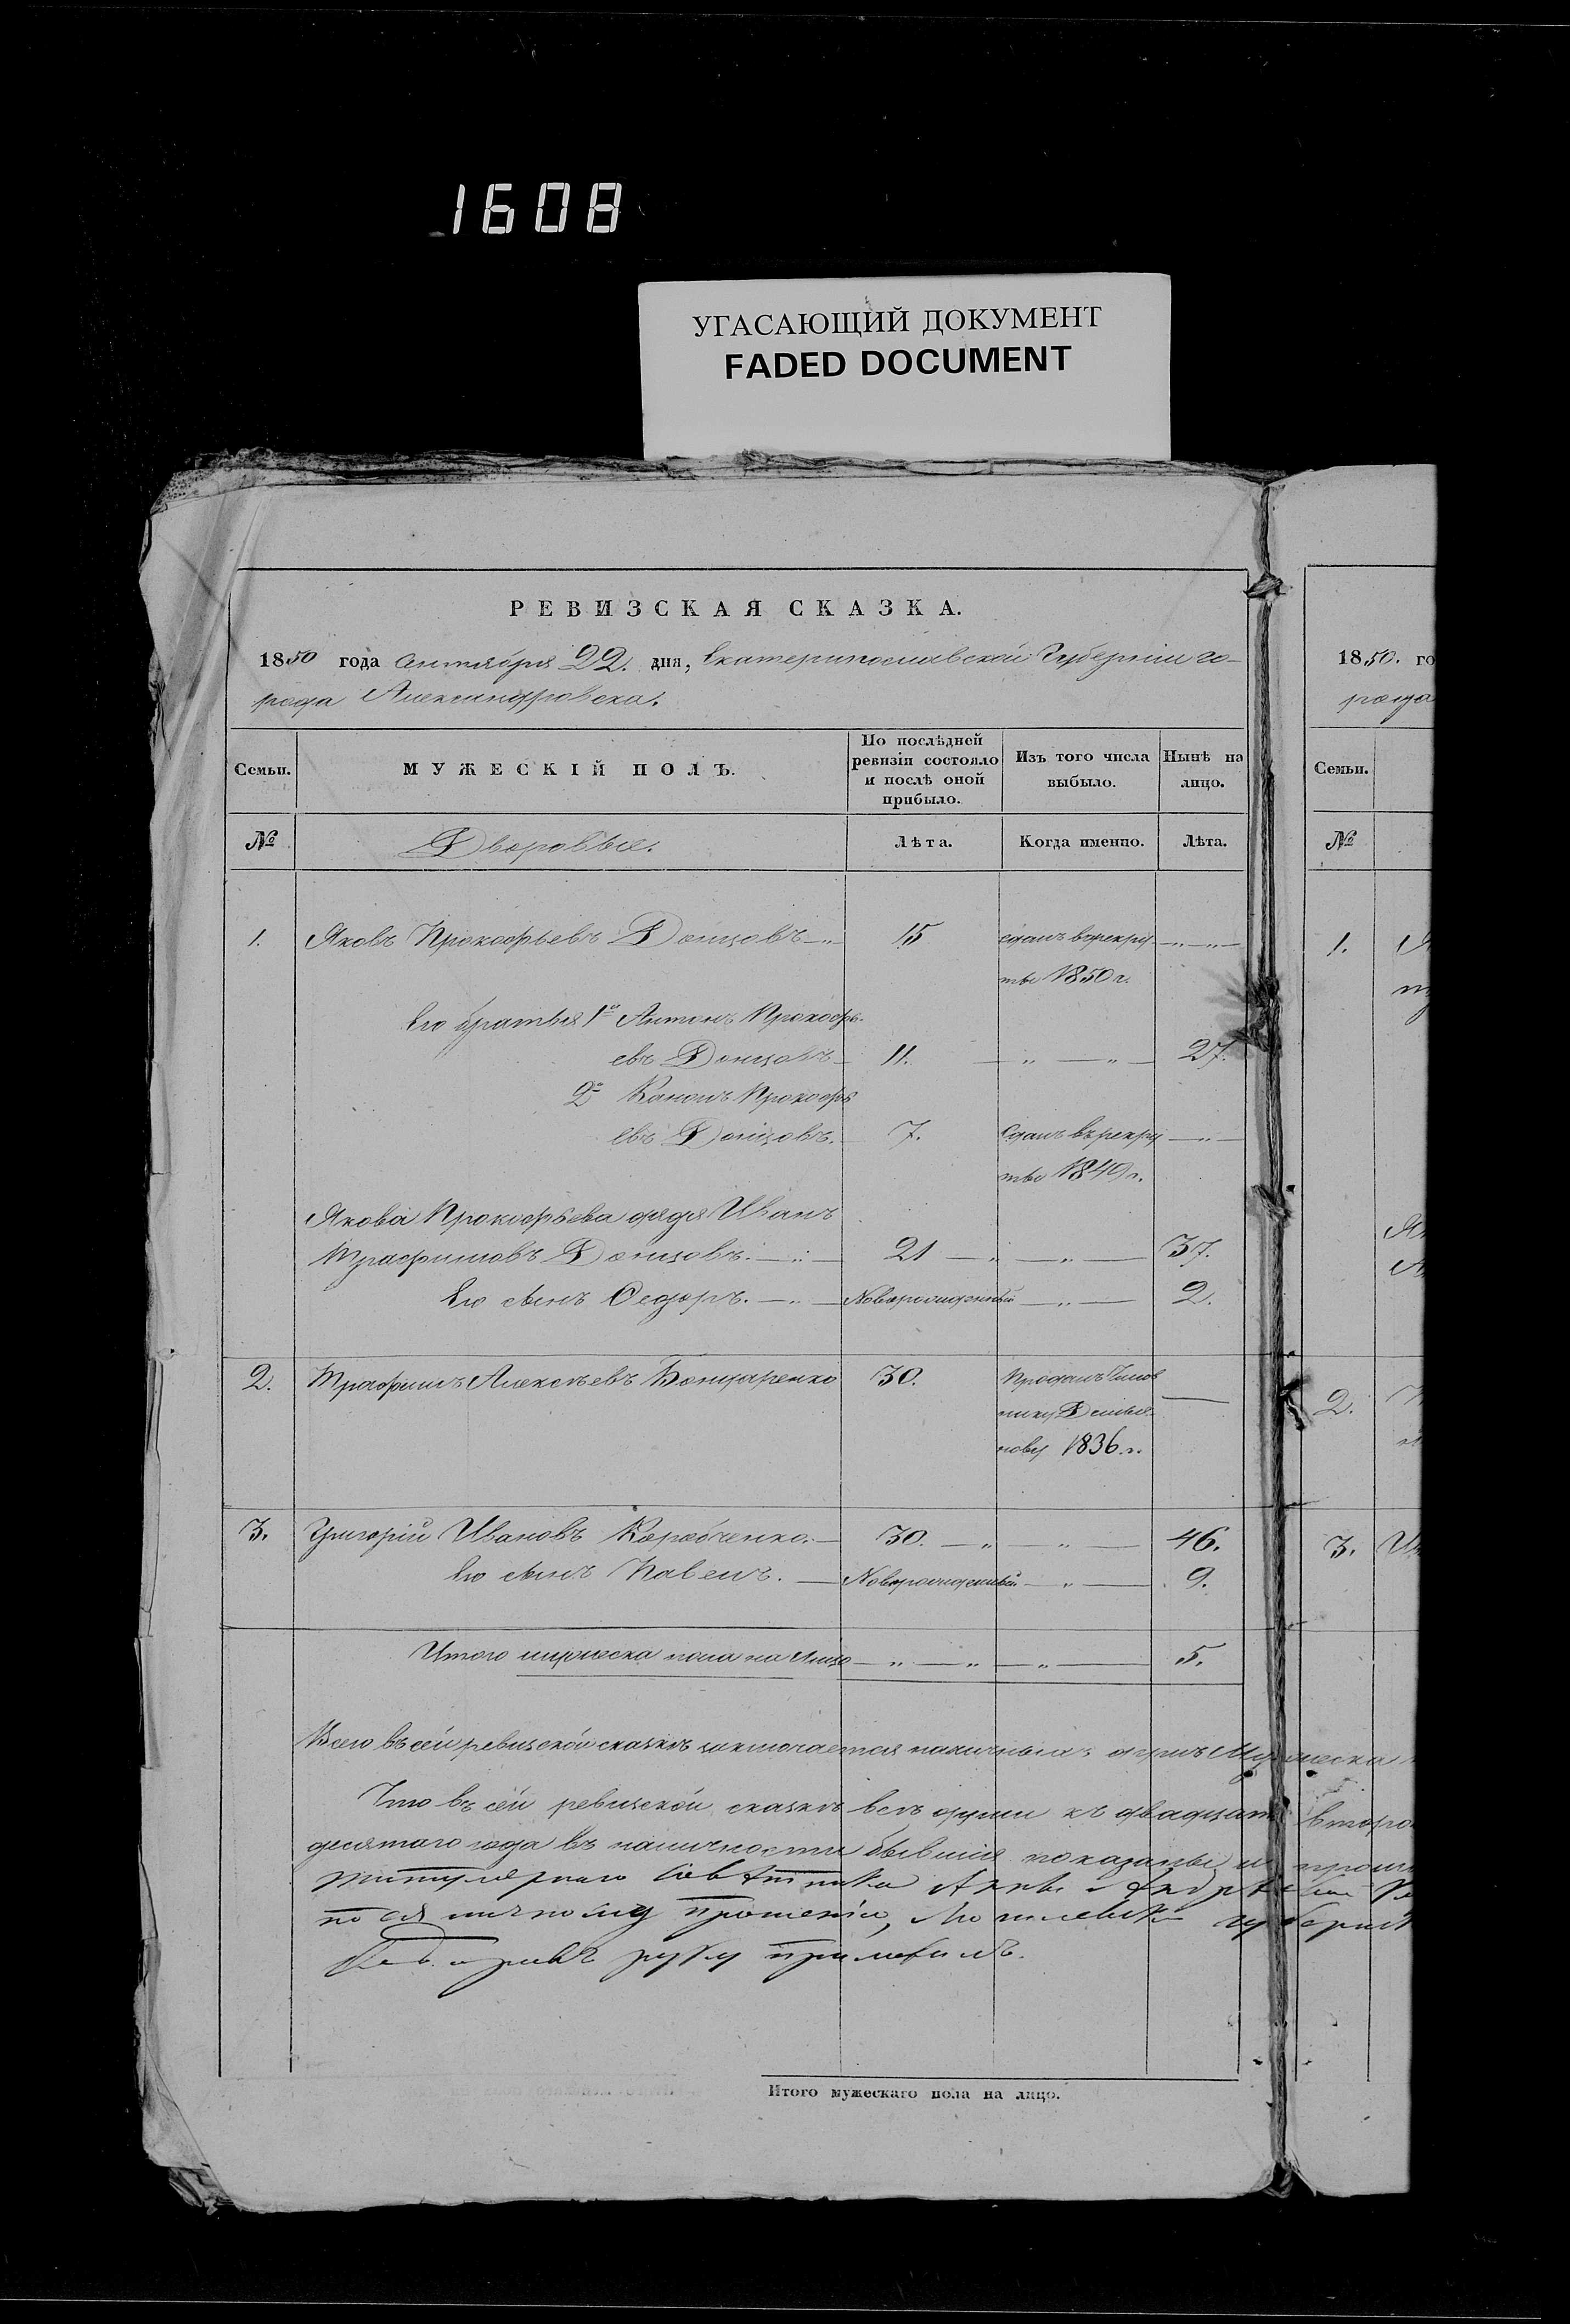 1608
УГАСАЮЩИЙ ДОКУМЕНТ
FADED DOCUMENT
РЕВИЗСКАЯ СКАЗКА.
1850 года Сентября 22. дня, Екатеринославской Губернии го-
рода Александровска.
Семьи.
МУЖЕСКІЙ ПОЛЪ.
По послѣдней ревизіи состояло и послѣ оной прибыло.
Изъ того числа выбыло.
Нынѣ на лицо.
№
Дворовые.
Лѣта.
Когда именно.
Лѣта.
1. Яковъ Прокофьевъ Донцовъ 15 сданъ в рекру
ты 1850 г.
Его братья 1й Антонъ Прокофь-
евъ Донцовъ 11. 27.
2й Канонъ Прокофь
евъ Донцовъ. 7. Сданъ въ рекру
ты 1849 г.
Якова Прокофьева дядя Иванъ
Трафимовъ Донцовъ. 21 37.
Его сынъ Федоръ. Новорожденный 2.
2. Трофимъ Алексѣевъ Бондаренко 30. Проданъ Чинов
нику Демья
нову 1836 г.
3. Григорій Ивановъ Коробченко. 30. 46.
Его сынъ Павелъ. Новорожденный 9.
Итого мужеска пола на лицо 5.
Всего въ сей ревизской сказкѣ заключается наличныхъ душъ Мужеска
Что въ сей ревизской сказкѣ всѣ души къ двадцать второ
десятаго года въ наличности бывшия показаны, и
титулярнаго Совѣтника Анны Андреевой
по ея личному прошенію, губерніи
руку приложилъ.
Итого мужескаго пола на лицо.
1850. го
рода
Семьи.
№
1.
2.
3.